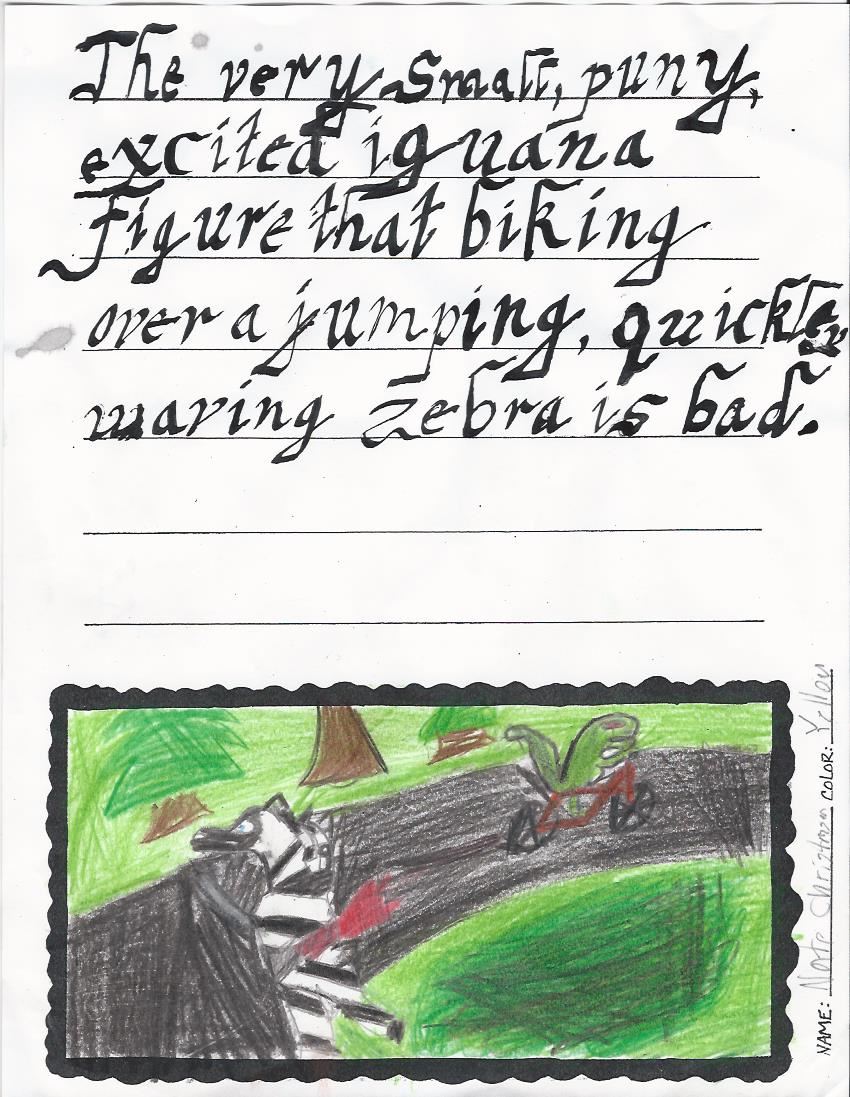 The very small, puny,
excited iguana
figure that biking
over a jumping, quickler
waving zebra is bad.
NAME: Nate Christman COLOR: Yellow